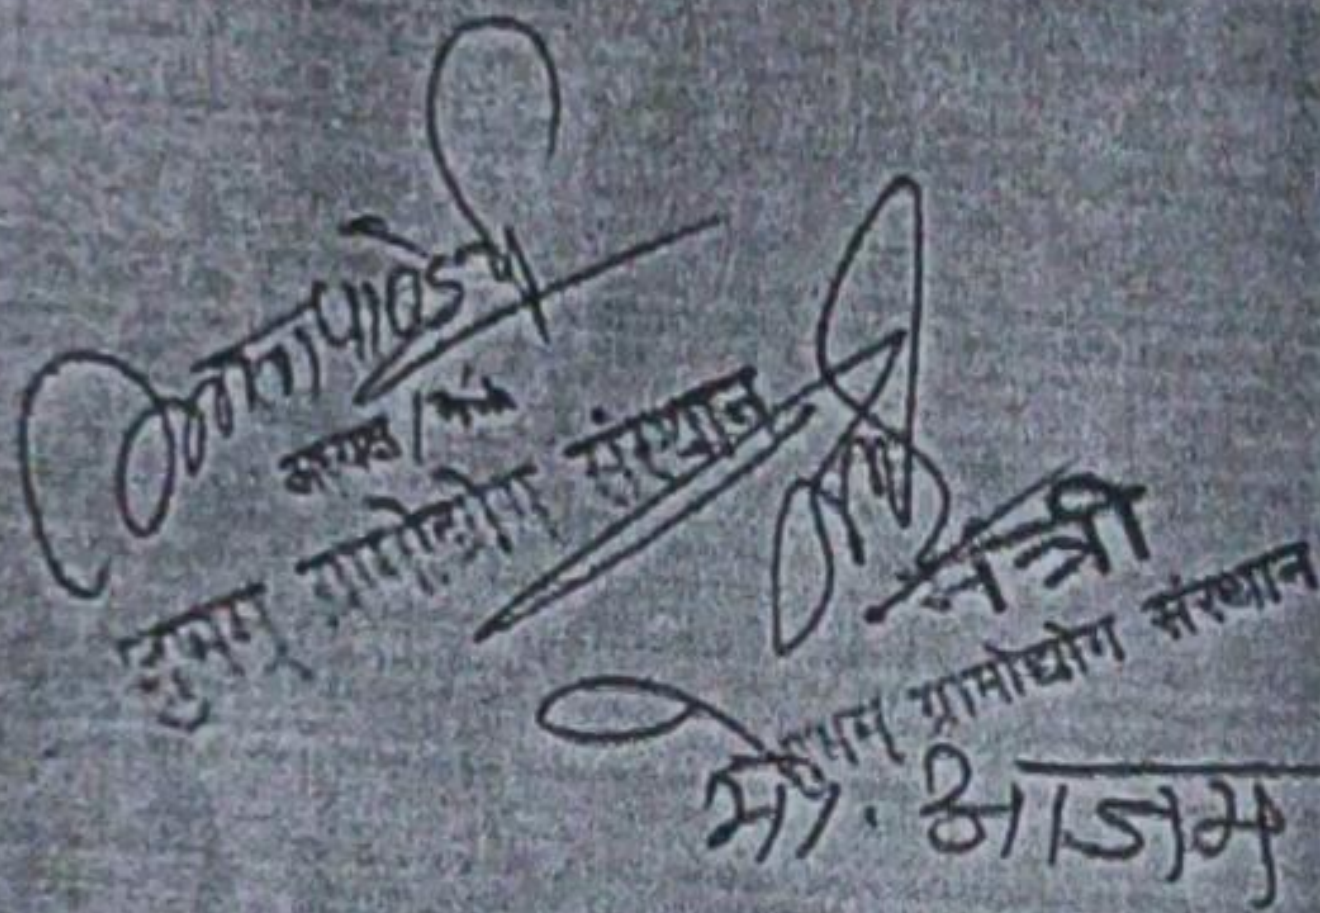 लता पाण्डेय
अध्यक्ष / मंत्री
शुभम् ग्रामोद्योग संस्थान
मन्त्री
शुभम् ग्रामोद्योग संस्थान
मो. आजम